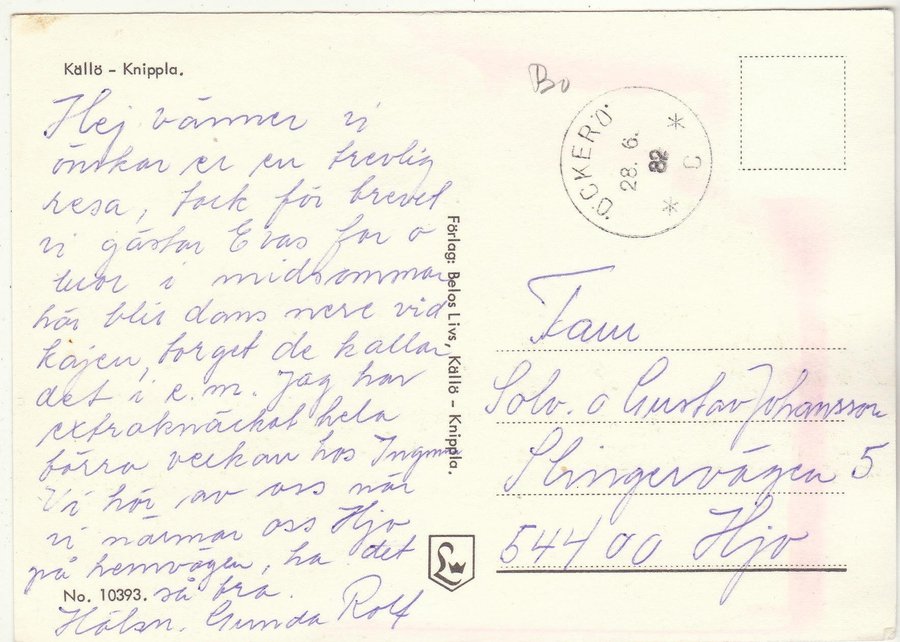 Källö - Knippla.
Hej vänner vi
önskar er en trevlig
resa, tack för brevet
vi gästar Evas far o
mor i midsommar
här blir dans nere vid
kajen, torget de kallar
det i e.m. Jag har
extraknäckat hela
förra veckan hos Ingmar
Vi hör av oss när
vi närmar oss Hjo
på hemvägen, ha det
så bra.
Hälsn. Gunda Rolf
No. 10393.
Förlag: Belos Livs, Källö - Knippla.
Bo
ÖCKERÖ
28. 6.
82
* C *
Fam
Solv. o Gustav Johansson
Slingervägen 5
544 00 Hjo
L